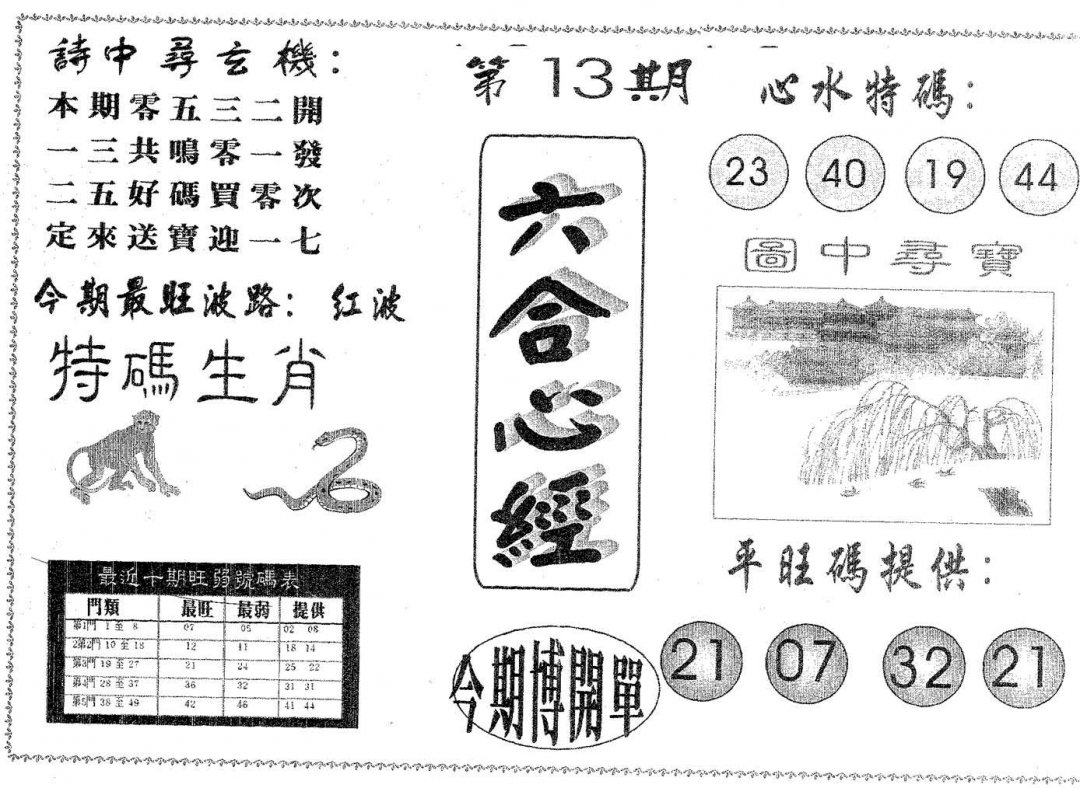 詩中尋玄機：
本期零五三二開
一三共鳴零一發
二五好碼買零次
定來送寶迎一七
今期最旺波路：紅波
特碼生肖
最近十期旺弱號碼表
門類 最旺 最弱 提供
第1門 1 至 8 07 05 02 08
第2門 10 至 18 12 11 18 14
第3門 19 至 27 21 24 25 22
第4門 28 至 37 36 32 31 31
第5門 38 至 49 42 46 41 44
第13期
六合心經
今期博開單
心水特碼：
23 40 19 44
圖中尋寶
平旺碼提供：
21 07 32 21